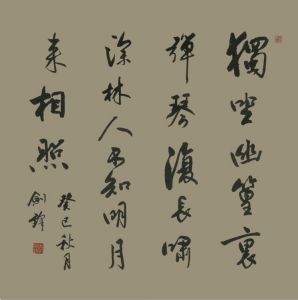 獨坐幽篁裏
彈琴復長嘯
深林人不知明月
来相照
癸巳秋月
劍鋒